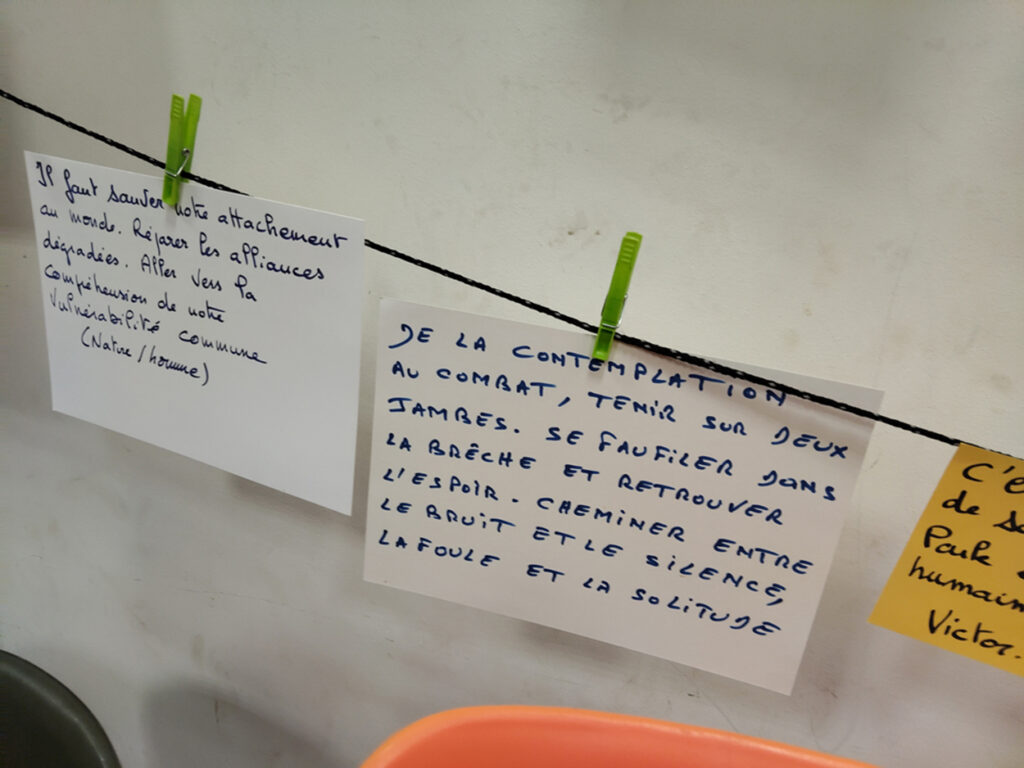 Il faut sauver notre attachement
au monde. Réparer les alliances
dégradées. Aller vers la
compréhension de notre
vulnérabilité commune
(Nature/homme)
DE LA CONTEMPLATION
AU COMBAT, TENIR SUR DEUX
JAMBES. SE FAUFILER DANS
LA BRÊCHE ET RETROUVER
L'ESPOIR. CHEMINER ENTRE
LE BRUIT ET LE SILENCE,
LA FOULE ET LA SOLITUDE
C'é
de
Park
humain
Victor.